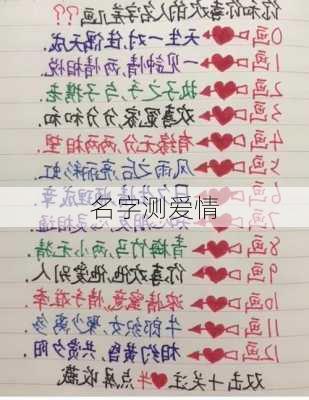 你和你喜欢的人名字差几画??
0画 天生一对,佳偶天成.
1画 一见钟情,两情相悦.
2画 执子之手,与子携老.
3画 欢喜冤家,分分和和.
4画 有缘无分,两两相望.
5画 风雨之后,亮丽彩虹.
6画 日久生情,理成章
名字测爱情
8画 青梅竹马,两小无猜
9画 你喜欢他,他爱别人
10画 浓情蜜意,情难牵
11画 牛郎织女,聚少离多
12画 相约黄昏,共赏夕阳.
双击+关注 点屏收藏